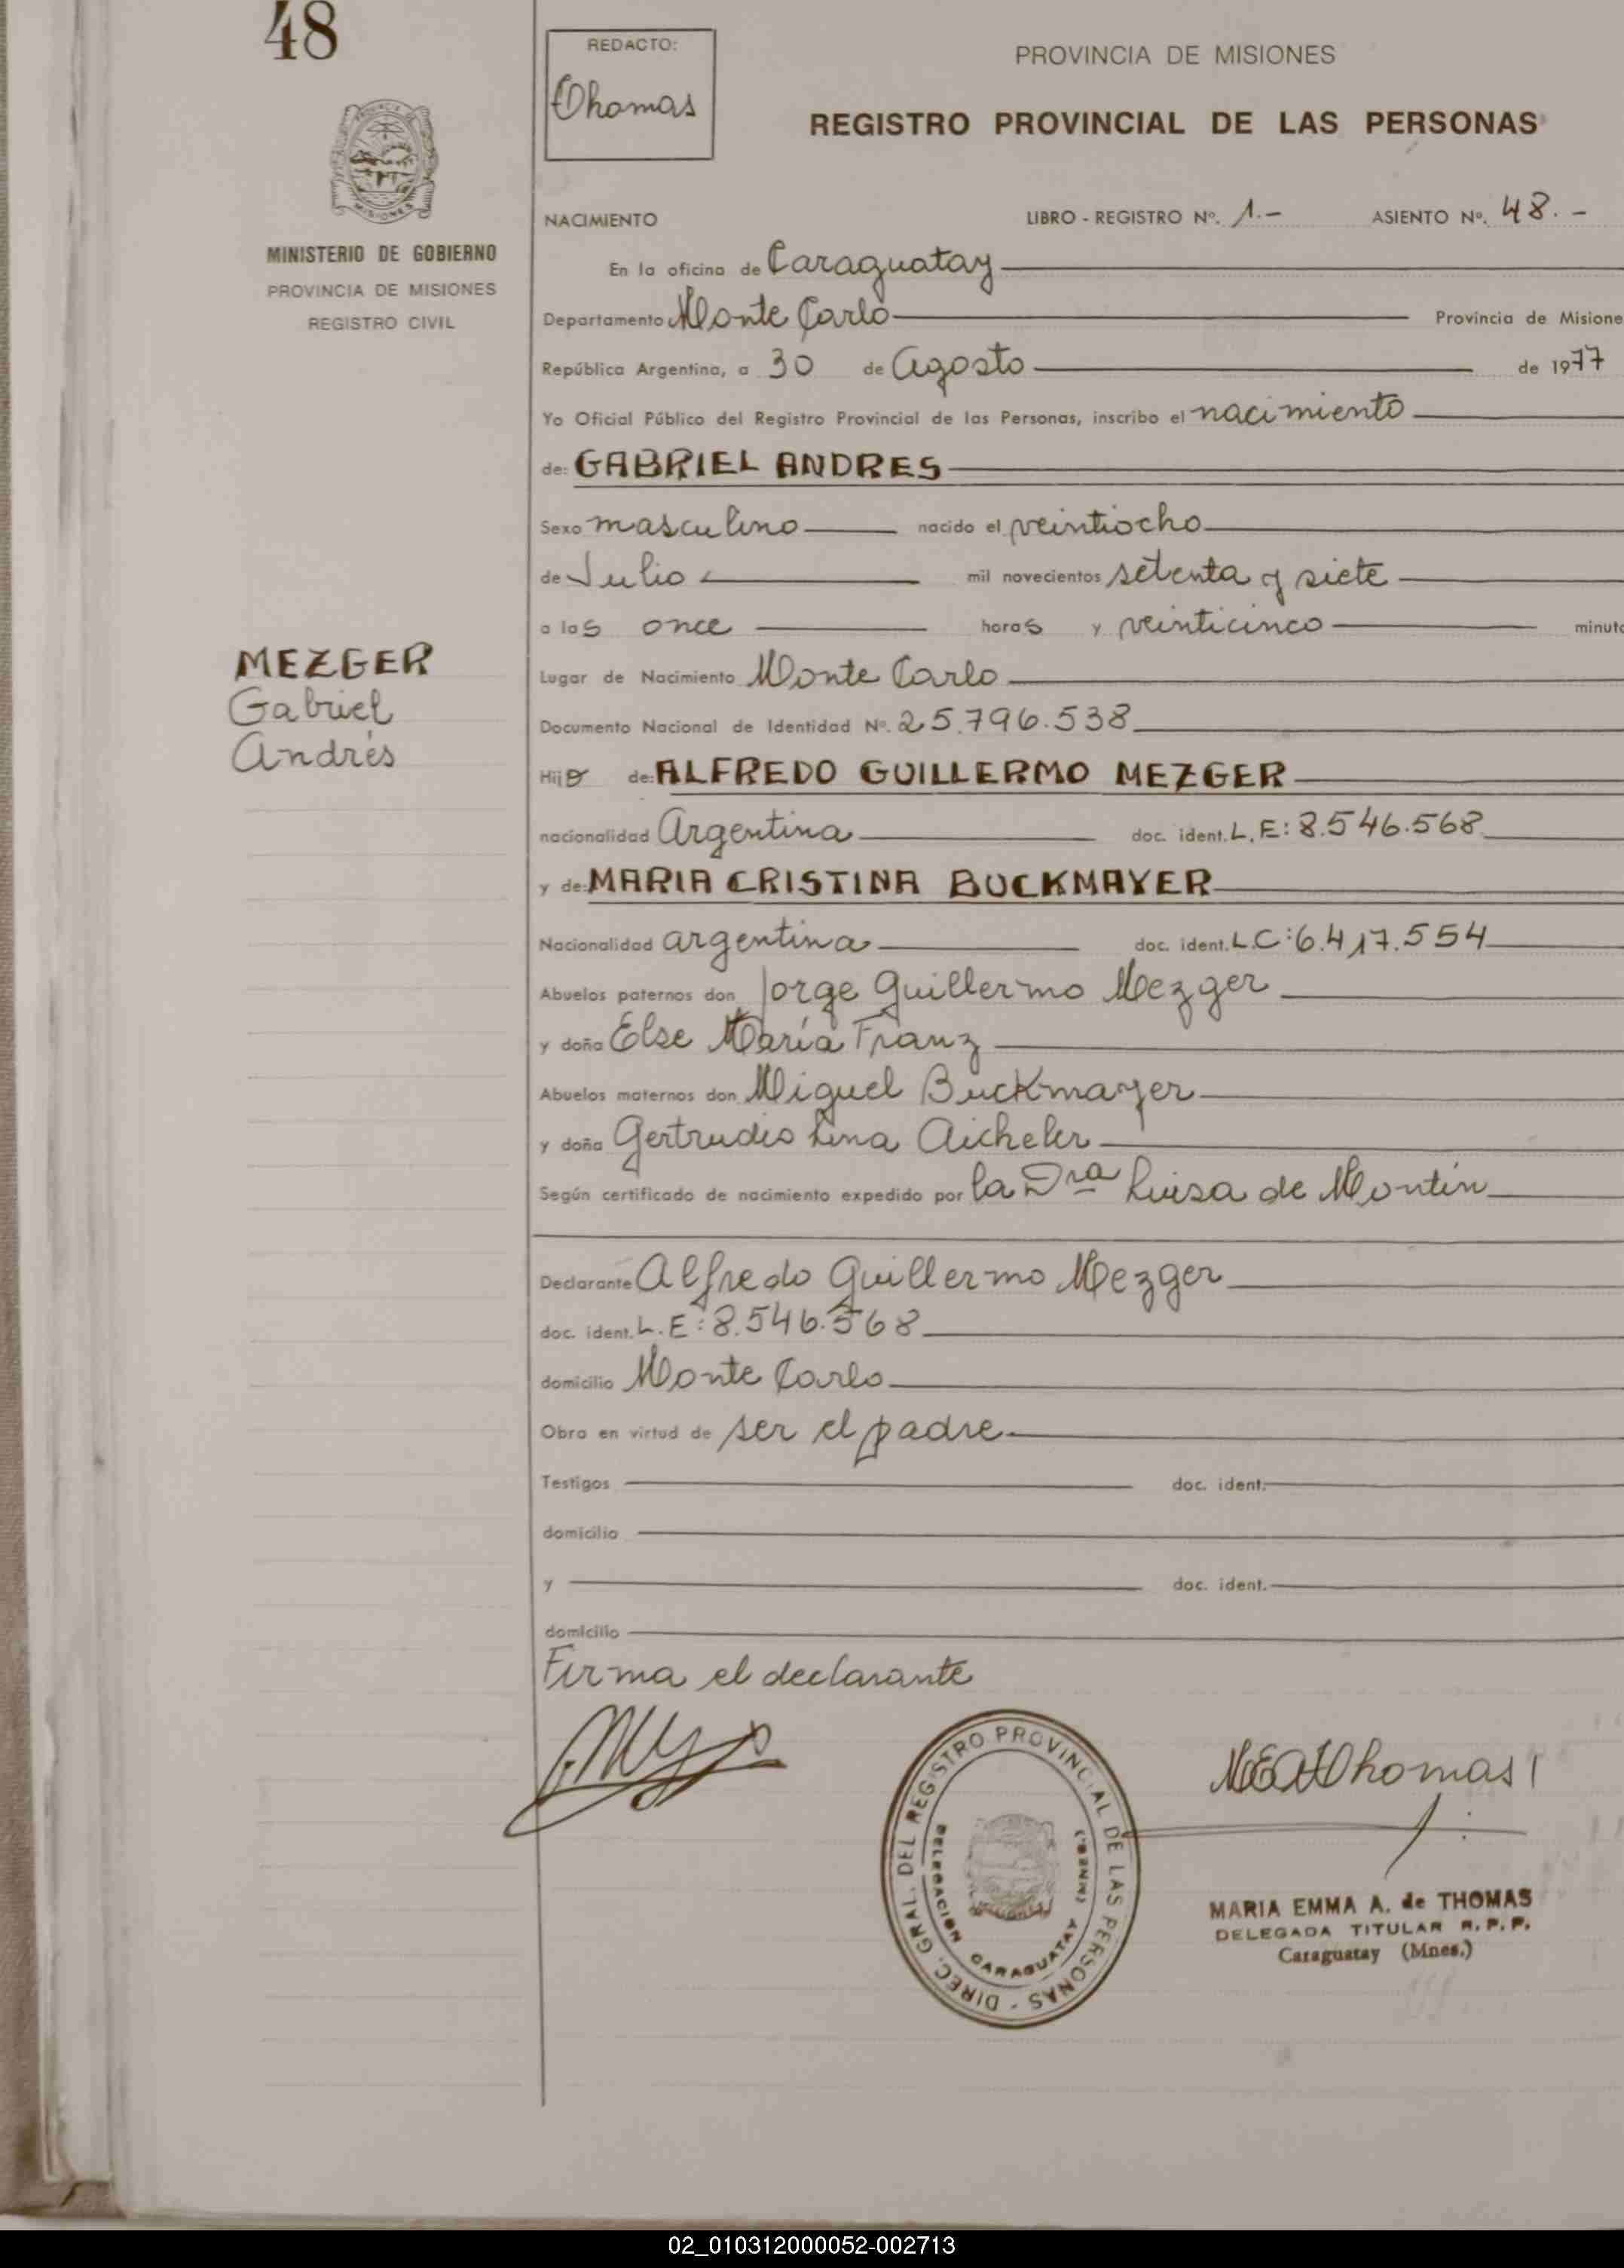 48
REDACTO:
Thomas
PROVINCIA DE MISIONES
REGISTRO PROVINCIAL DE LAS PERSONAS
MISIONES
MINISTERIO DE GOBIERNO
PROVINCIA DE MISIONES
REGISTRO CIVIL
NACIMIENTO LIBRO - REGISTRO Nº. 1.- ASIENTO Nº. 48.-
En la oficina de Caraguatay
Departamento Monte Carlo Provincia de Misione
República Argentina, a 30 de Agosto de 1977
Yo Oficial Público del Registro Provincial de las Personas, inscribo el nacimiento
de: GABRIEL ANDRES
Sexo masculino nacido el veintiocho
de Julio mil novecientos setenta y siete
a las once horas y veinticinco minuto
MEZGER
Gabriel
Andrés
Lugar de Nacimiento Monte Carlo
Documento Nacional de Identidad Nº. 25.796.538
Hijo de: ALFREDO GUILLERMO MEZGER
nacionalidad Argentina doc. ident. L.E: 8.546.568
y de: MARIA CRISTINA BUCKMAYER
Nacionalidad argentina doc. ident. L.C: 6.417.554
Abuelos paternos don Jorge Guillermo Mezger
y doña Else María Franz
Abuelos maternos don Miguel Buckmayer
y doña Gertrudis Lina Aicheler
Según certificado de nacimiento expedido por la Dra Luisa de Montin
Declarante Alfredo Guillermo Mezger
doc. ident. L.E: 8.546.568
domicilio Monte Carlo
Obra en virtud de ser el padre
Testigos doc. ident.
domicilio
y doc. ident.
domicilio
Firma el declarante
DIREC. GRAL. DEL REGISTRO PROVINCIAL DE LAS PERSONAS -
DELEGACION CARAGUATAY (MNES.)
MEAThomas
MARIA EMMA A. de THOMAS
DELEGADA TITULAR R.P.P.
Caraguatay (Mnes.)
02_010312000052-002713